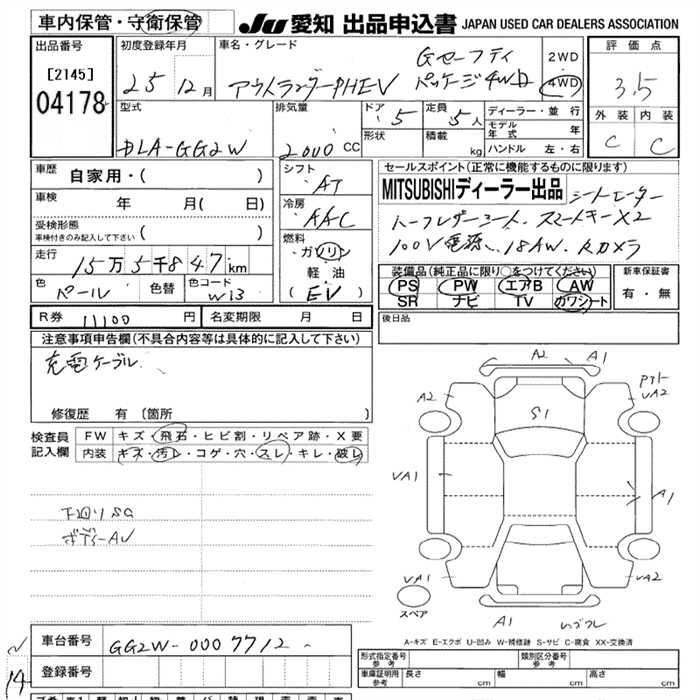 車内保管・守衛保管
JU 愛知 出品申込書 JAPAN USED CAR DEALERS ASSOCIATION
出品番号
[2145]
04178
初度登録年月
25 12月
車名・グレード
アウトランダーPHEV
Gセーフティ
パッケージ4WD
2WD
4WD
評価点
3.5
外装 内装
C C
型式
DLA-GG2W
排気量
2000 cc
ドア 5
形状
定員 5人
積載 kg
ディーラー・並行
モデル年式 年
ハンドル 左・右
車歴
自家用・( )
車検 年 月( 日)
受検形態
車検付きのみ記入して下さい ( )
走行
15万5千847km
色
パール
色替
色コード
W13
シフト
AT
冷房
AAC
燃料
ガソリン
軽油
(EV)
セールスポイント(正常に機能するものに限ります)
MITSUBISHIディーラー出品 シートヒーター
ハーフレザーシート、スマートキーX2
100V電源、18AW、Rカメラ
装備品(純正品に限り○をつけてください)
PS PW エアB AW
SR ナビ TV カワシート
新車保証書
有・無
R券 11100 円
名変期限 月 日
後日品
注意事項申告欄(不具合内容等は具体的に記入して下さい)
充電ケーブル
修復歴 有(箇所 )
検査員
記入欄
FW キズ・飛石・ヒビ割・リペア跡・X要
内装 キズ・汚レ・コゲ・穴・スレ・キレ・破レ
下回りSC
ボディーAU
A2 A1
A2
S1
VA2
VA1
A1
VA1
VA2
A1
スペア
A-キズ E-エクボ U-凹み W-補修跡 S-サビ C-腐食 XX-交換済
車台番号 GG2W-0007712
登録番号
14
形式指定番号 参考
類別区分番号 参考
車庫証明用 参考 長さ cm 幅 cm 高さ cm